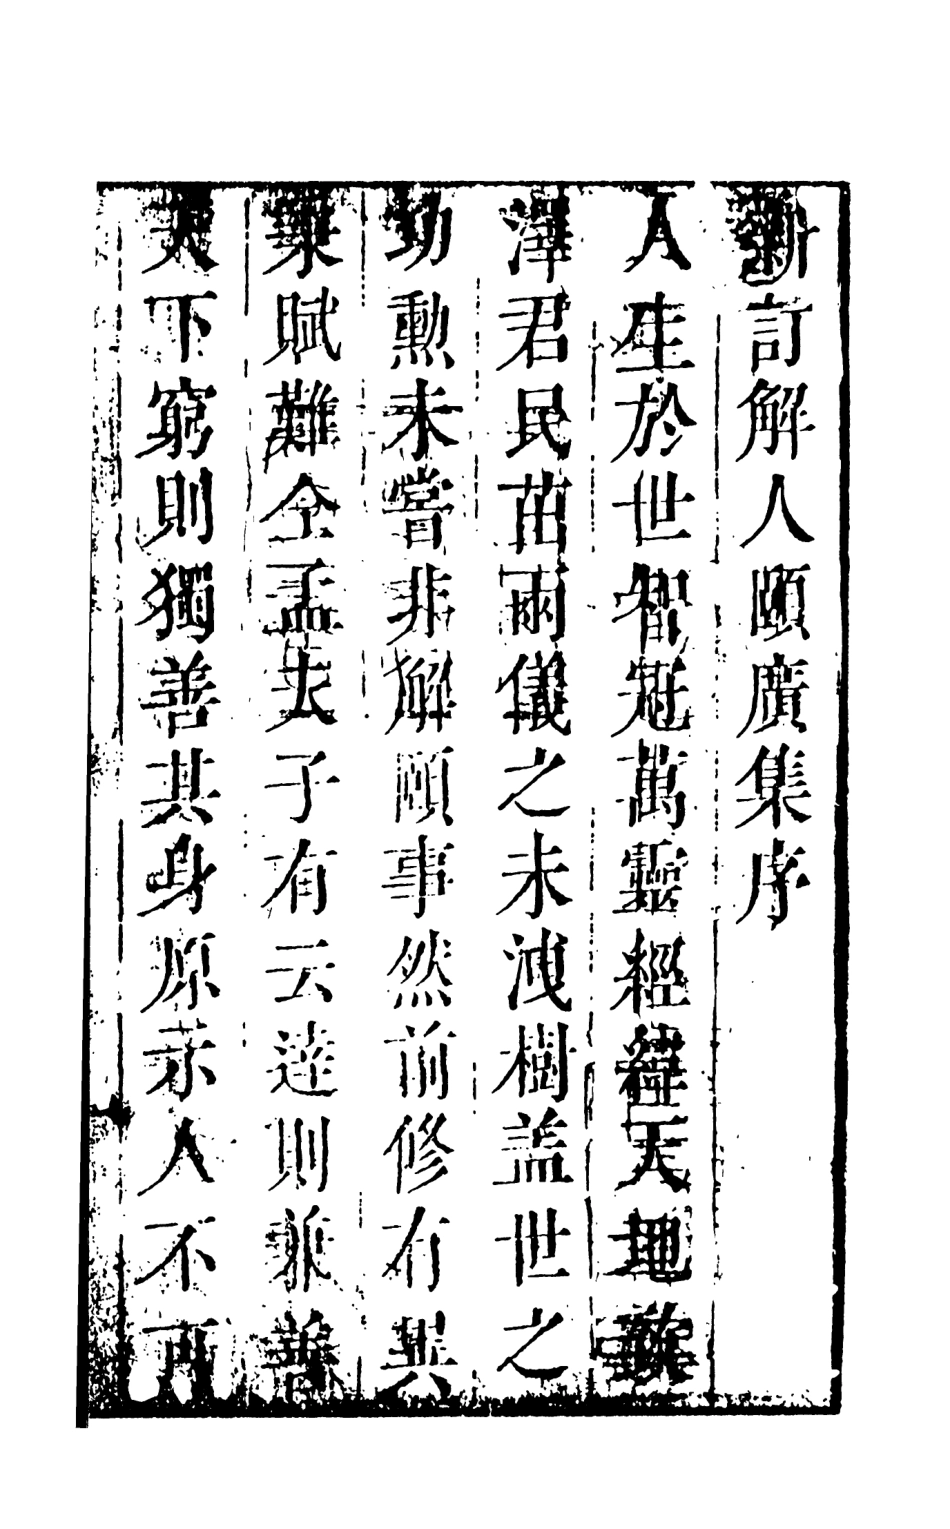 新訂解人頤廣集序
人生於世智冠萬靈經緯天地
澤君民苗兩儀之未洩樹盖世之
功勲未嘗非解頤事然前修有異
秉賦難全孟夫子有云達則兼善
天下窮則獨善其身原示人不可